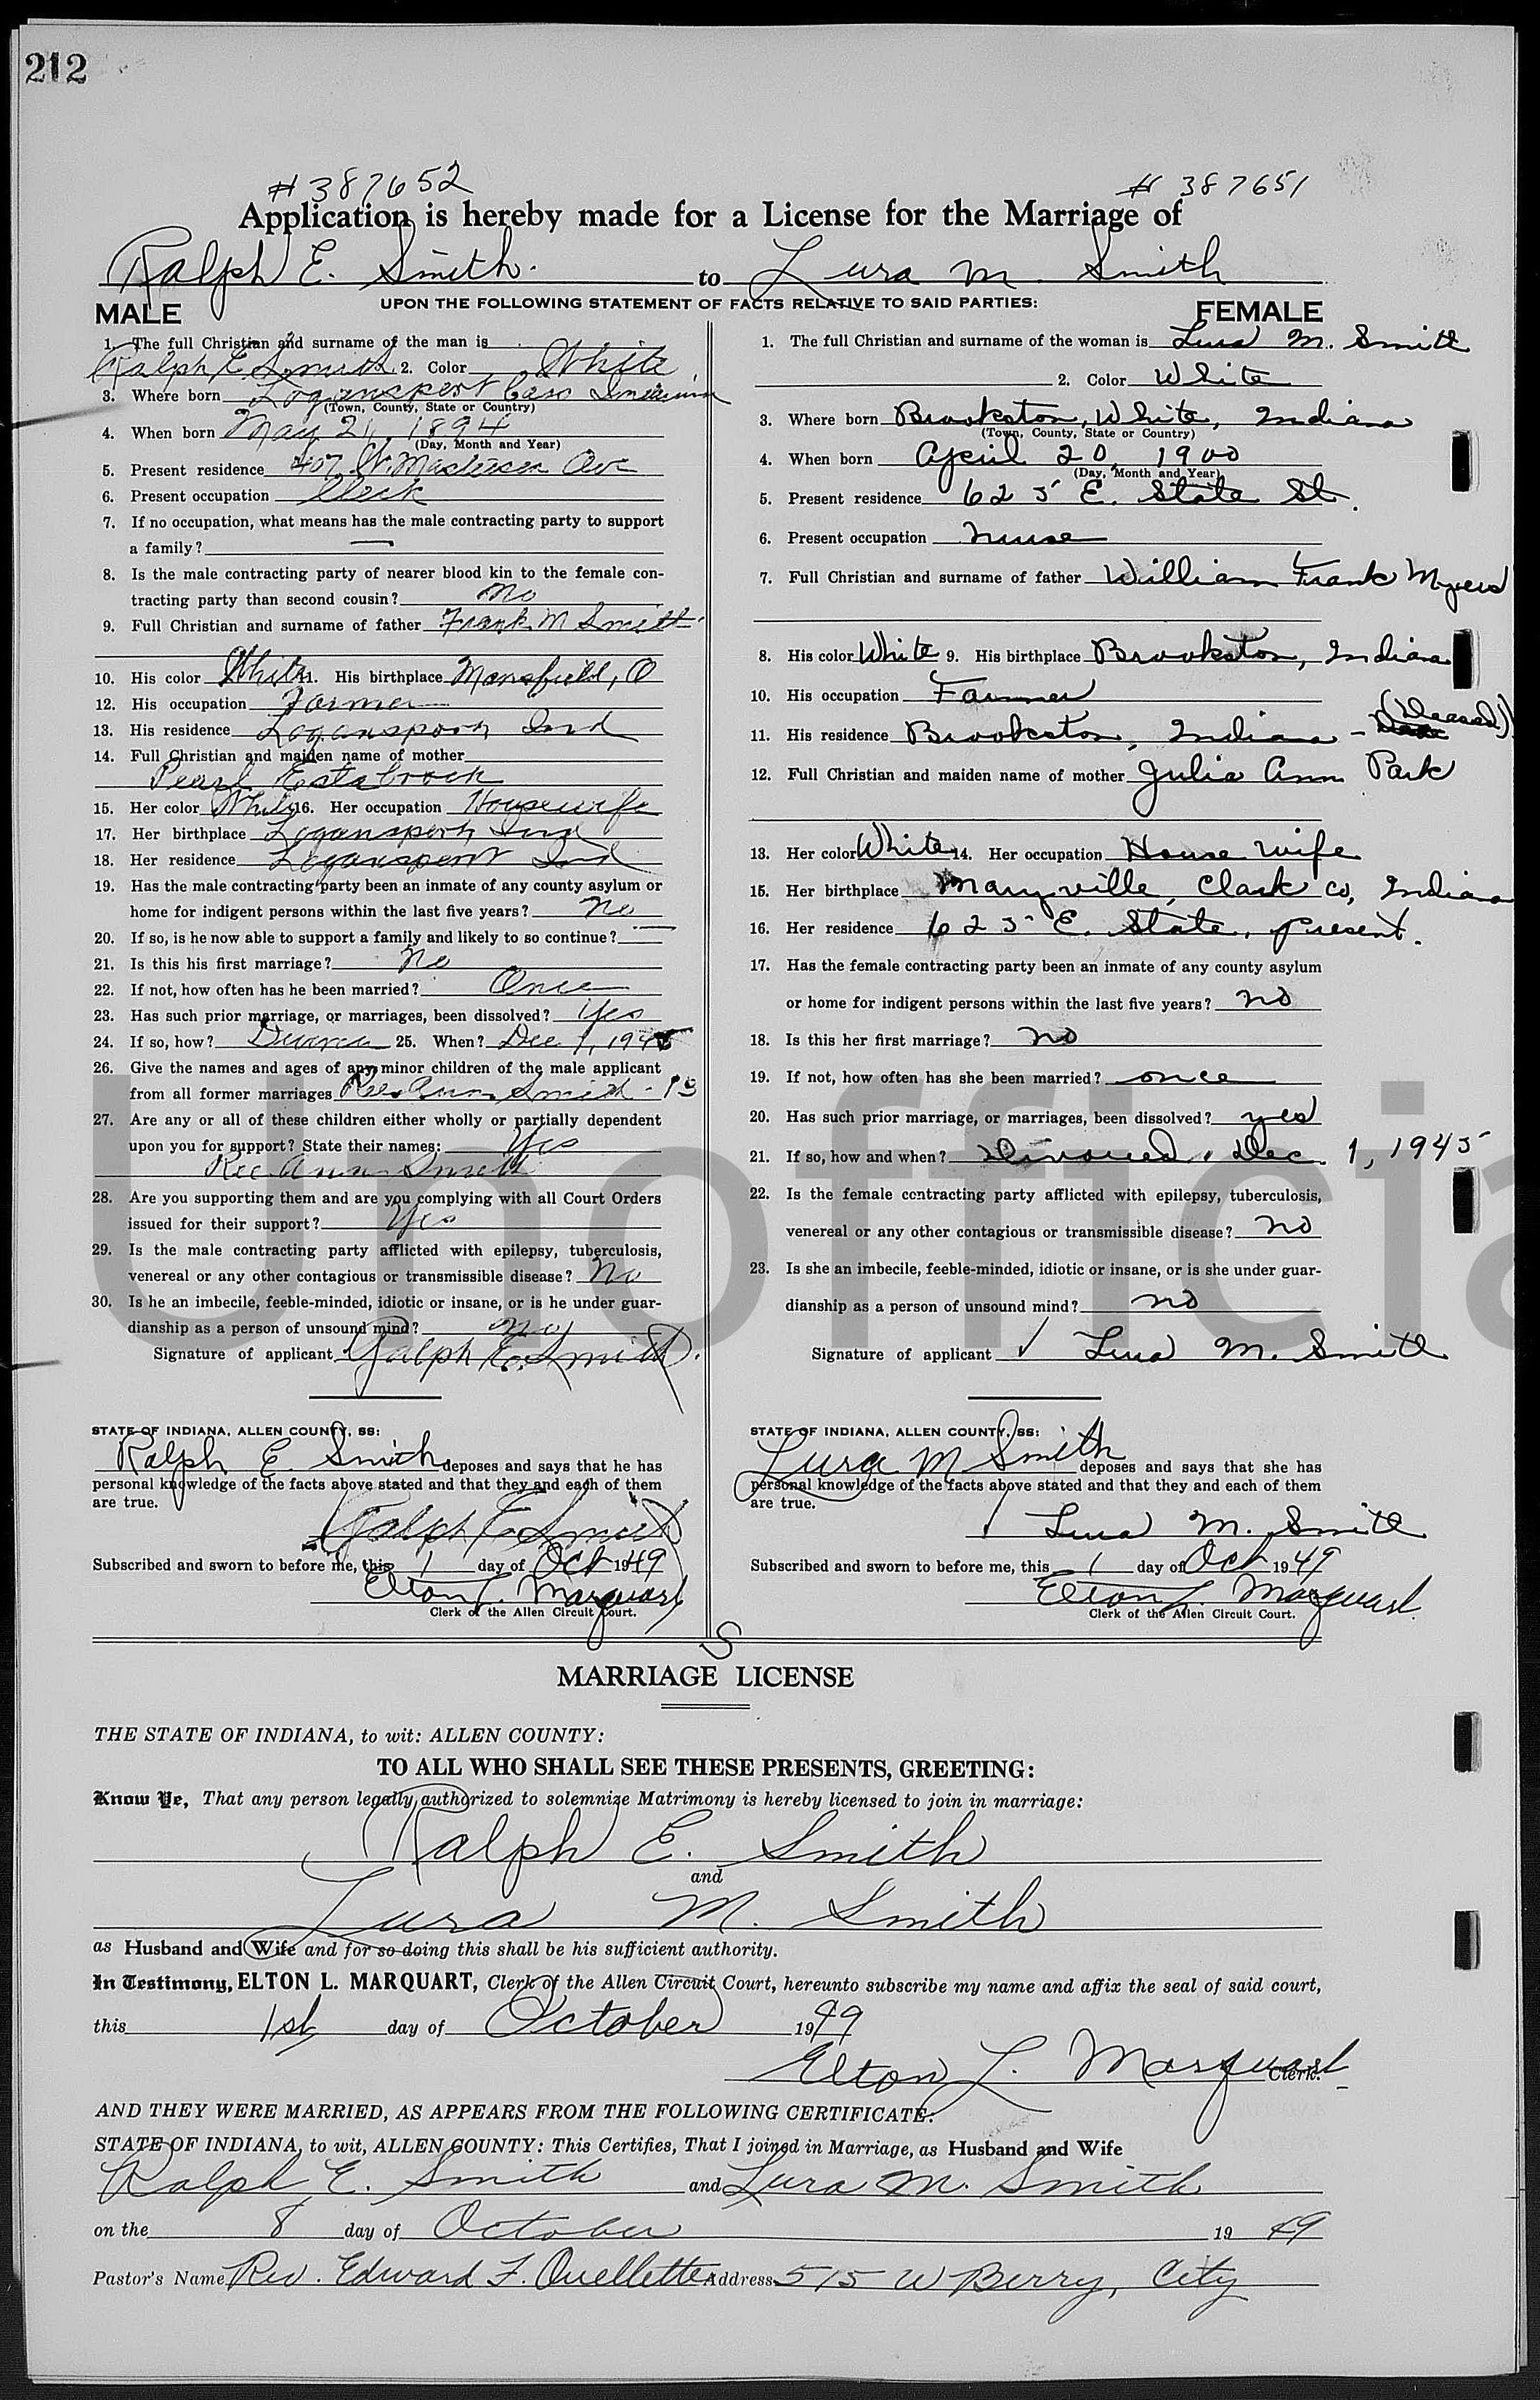 212
# 387652 # 387651
Application is hereby made for a License for the Marriage of
Ralph E. Smith. to Lura M. Smith
MALE UPON THE FOLLOWING STATEMENT OF FACTS RELATIVE TO SAID PARTIES: FEMALE
1. The full Christian and surname of the man is
Ralph E Smith 2. Color White
3. Where born Logansport Cass Indiana
(Town, County, State or Country)
4. When born May 21 1894
(Day, Month and Year)
5. Present residence 407 W. Ave
6. Present occupation Clerk
7. If no occupation, what means has the male contracting party to support
a family? —
8. Is the male contracting party of nearer blood kin to the female con-
tracting party than second cousin? No
9. Full Christian and surname of father Frank M Smith
10. His color White 11. His birthplace Mansfield, O
12. His occupation Farmer
13. His residence Logansport Ind
14. Full Christian and maiden name of mother
Pearl Estabrook
15. Her color White 16. Her occupation Housewife
17. Her birthplace Logansport Ind
18. Her residence Logansport Ind
19. Has the male contracting party been an inmate of any county asylum or
home for indigent persons within the last five years? No
20. If so, is he now able to support a family and likely to so continue? —
21. Is this his first marriage? No
22. If not, how often has he been married? Once
23. Has such prior marriage, or marriages, been dissolved? Yes
24. If so, how? Divorce 25. When? Dec 1, 1945
26. Give the names and ages of any minor children of the male applicant
from all former marriages Ree Ann Smith - 13
27. Are any or all of these children either wholly or partially dependent
upon you for support? State their names: Yes
Ree Ann Smith
28. Are you supporting them and are you complying with all Court Orders
issued for their support? Yes
29. Is the male contracting party afflicted with epilepsy, tuberculosis,
venereal or any other contagious or transmissible disease? No
30. Is he an imbecile, feeble-minded, idiotic or insane, or is he under guar-
dianship as a person of unsound mind? No
Signature of applicant Ralph E. Smith.
STATE OF INDIANA, ALLEN COUNTY, SS:
Ralph E. Smith deposes and says that he has
personal knowledge of the facts above stated and that they and each of them
are true.
Ralph E. Smith
Subscribed and sworn to before me, this 1 day of Oct 1949
Elton L. Marquart
Clerk of the Allen Circuit Court.
1. The full Christian and surname of the woman is Lura M. Smith
2. Color White
3. Where born Brookston, White, Indiana
(Town, County, State or Country)
4. When born April 20, 1900
(Day, Month and Year)
5. Present residence 625 E. State St.
6. Present occupation nurse
7. Full Christian and surname of father William Frank Myers
8. His color White 9. His birthplace Brookston, Indiana
10. His occupation Farmer
11. His residence Brookston, Indiana - (Deceased)
12. Full Christian and maiden name of mother Julia Ann Park
13. Her color White 14. Her occupation House wife
15. Her birthplace Maryville, Clark Co, Indiana
16. Her residence 625 E. State, present.
17. Has the female contracting party been an inmate of any county asylum
or home for indigent persons within the last five years? no
18. Is this her first marriage? no
19. If not, how often has she been married? once
20. Has such prior marriage, or marriages, been dissolved? yes
21. If so, how and when? Divorced, Dec. 1, 1945
22. Is the female contracting party afflicted with epilepsy, tuberculosis,
venereal or any other contagious or transmissible disease? no
23. Is she an imbecile, feeble-minded, idiotic or insane, or is she under guar-
dianship as a person of unsound mind? no
Signature of applicant ✓ Lura M. Smith
STATE OF INDIANA, ALLEN COUNTY, SS:
Lura M Smith deposes and says that she has
personal knowledge of the facts above stated and that they and each of them
are true.
✓ Lura M. Smith
Subscribed and sworn to before me, this 1 day of Oct 1949
Elton L. Marquart
Clerk of the Allen Circuit Court.
S
MARRIAGE LICENSE
THE STATE OF INDIANA, to wit: ALLEN COUNTY:
TO ALL WHO SHALL SEE THESE PRESENTS, GREETING:
Know Ye, That any person legally authorized to solemnize Matrimony is hereby licensed to join in marriage:
Ralph E. Smith
and
Lura M. Smith
as Husband and Wife and for so doing this shall be his sufficient authority.
In Testimony, ELTON L. MARQUART, Clerk of the Allen Circuit Court, hereunto subscribe my name and affix the seal of said court,
this 1st day of October 1949
Elton L. Marquart Clerk.
AND THEY WERE MARRIED, AS APPEARS FROM THE FOLLOWING CERTIFICATE:
STATE OF INDIANA, to wit, ALLEN COUNTY: This Certifies, That I joined in Marriage, as Husband and Wife
Ralph E. Smith and Lura M. Smith
on the 8 day of October 19 49
Pastor's Name Rev. Edward F. Ouellette Address 515 W Berry, City
Unofficia